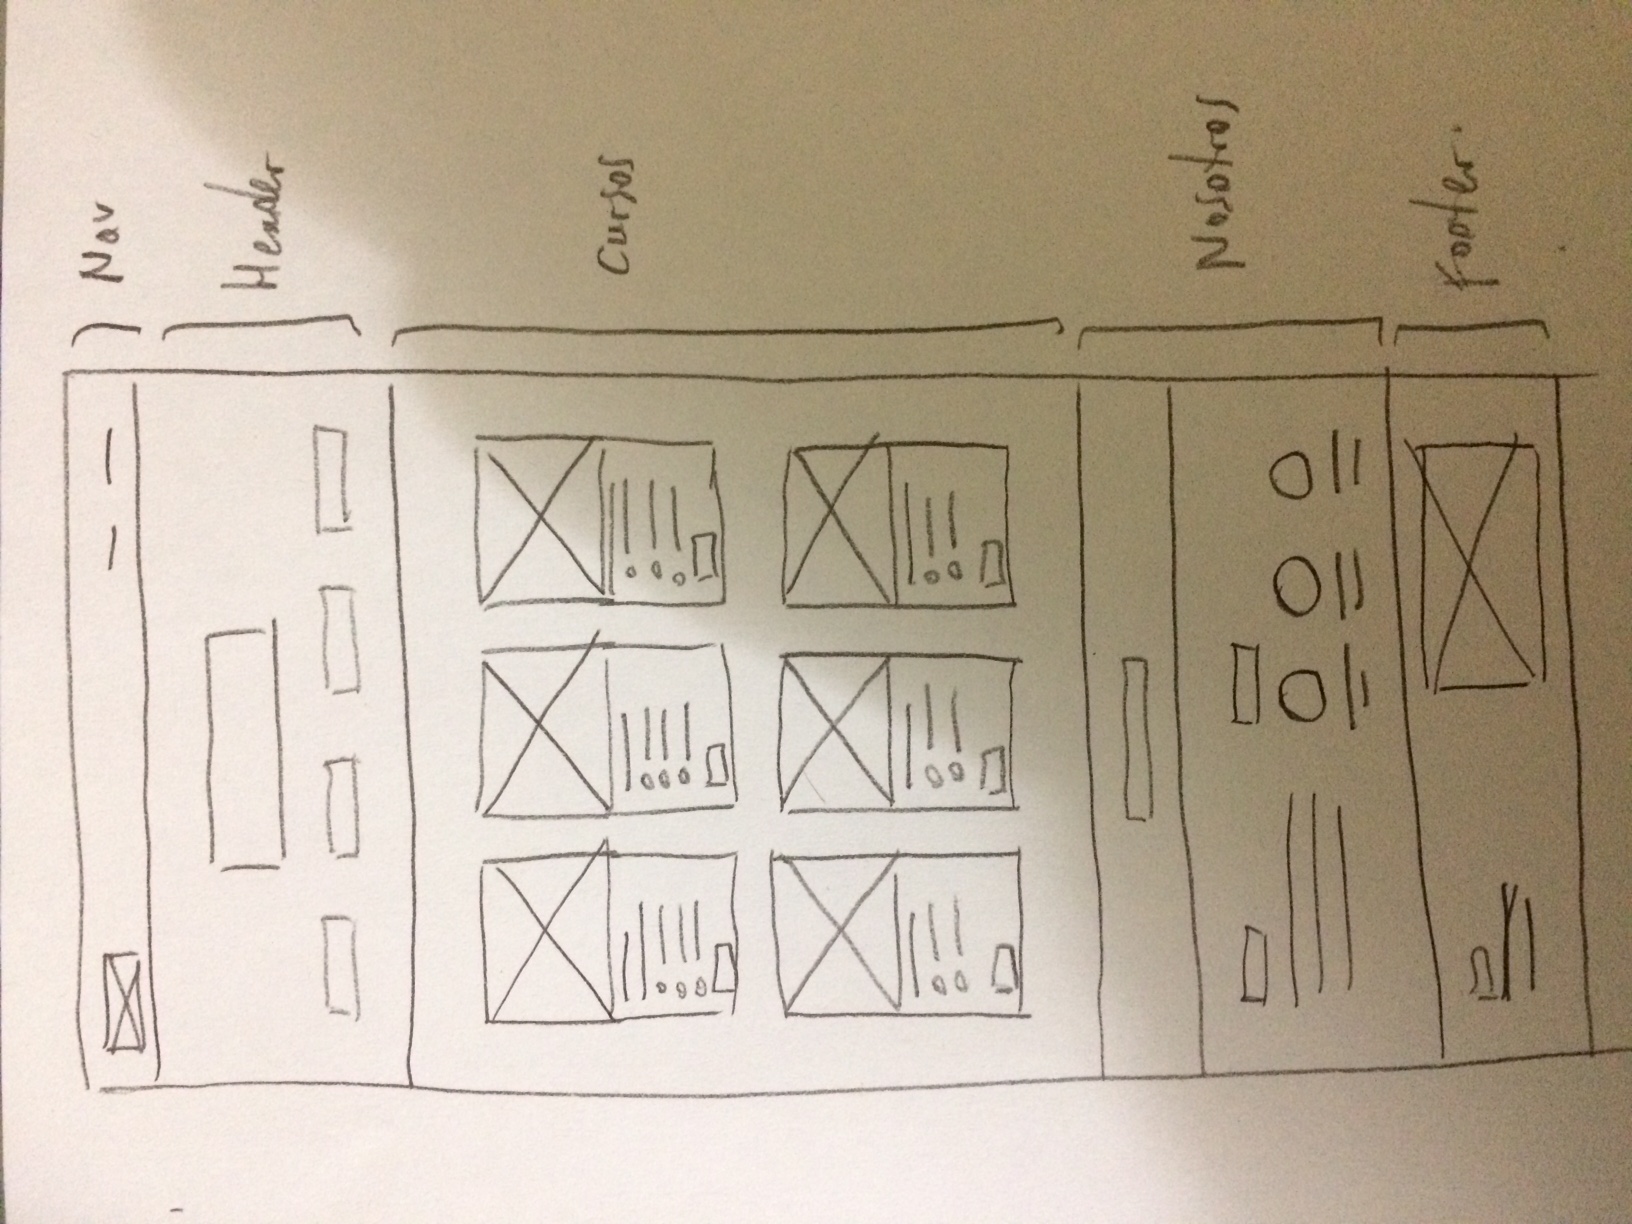 Nav
Header
Cursos
Nosotros
Footer.